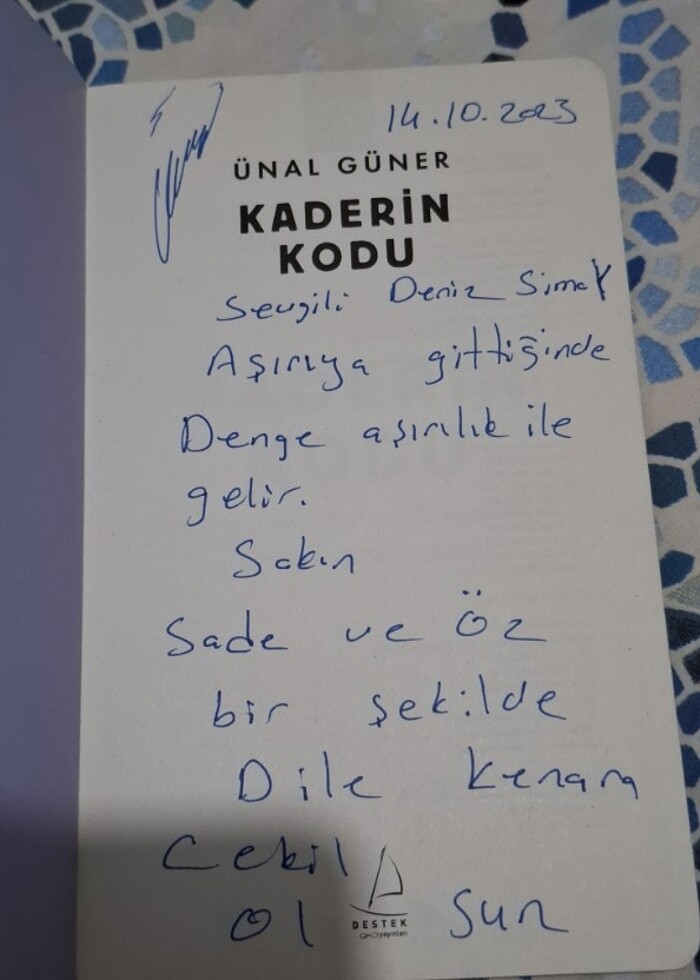 14.10.2023
ÜNAL GÜNER
KADERİN
KODU
Sevgili Deniz Simay
Aşırıya gittiğinde
Denge aşırılık ile
gelir.
Sakin
Sade ve Öz
bir şekilde
Dile kenara
Çekil
DESTEK
yayınları
Ol sun